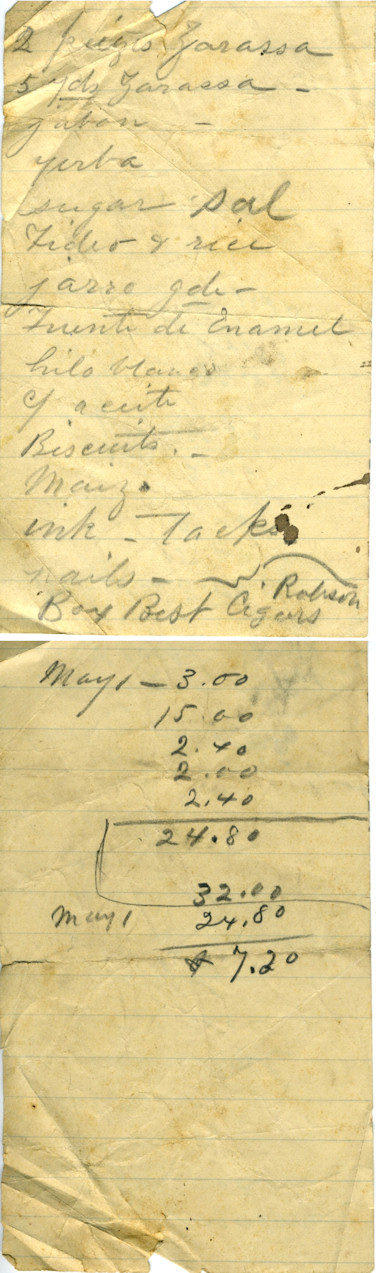 2 Zarassa
5 yds Zarassa -
jabon -
yerba
sugar sal
Fideo & rice
jarro gde -
Fuente de Enamel
hilo blanco
C/ aceite
Biscuits. -
Maiz.
ink - Tacks
nails -
Robson
Box Best Cigars
May 1 - 3.00
15.00
2.40
2.00
2.40
24.80
32.00
May 1 24.80
7.20